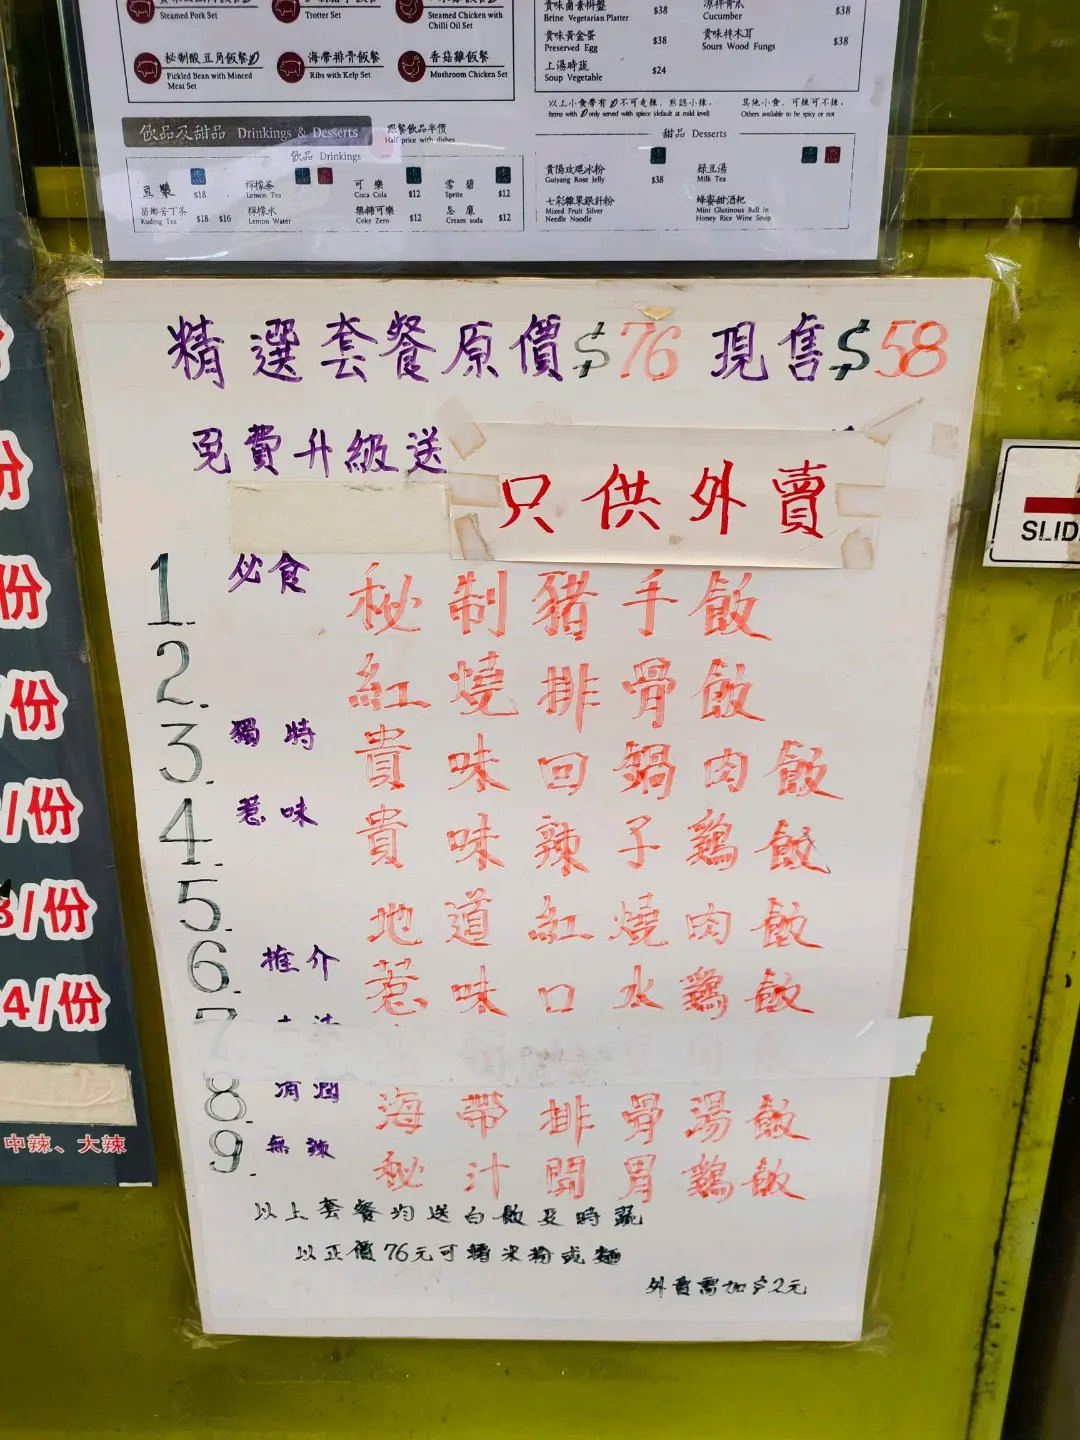 飯餐
Steamed Pork Set
Trotter Set
Steamed Chicken with
Chilli Oil Set
秘制酸豆角飯餐
Pickled Bean with Minced
Meat Set
海帶排骨飯餐
Ribs with Kelp Set
香菇雞飯餐
Mushroom Chicken Set
Brine Vegetarian Platter
$38
Cucumber
$38
貴味黃金蛋
Preserved Egg
$38
貴味拌木耳
Sours Wood Fungs
$38
上湯時蔬
Soup Vegetable
$24
以上小食帶有不可走辣，默認小辣。
Items with only served with spice (default at mild level)
其他小食，可辣可不辣。
Others available to be spicy or not
飲品及甜品 Drinkings & Desserts
跟餐飲品半價
Half price with dishes
飲品 Drinkings
豆漿
$18
檸檬茶
Lemon Tea
可樂
Coca Cola
$12
雪碧
Sprite
$12
苗鄉苦丁茶
Kuding Tea
$18 $16
檸檬水
Lemon Water
無糖可樂
Coke Zero
$12
忌廉
Cream soda
$12
甜品 Desserts
貴陽玫瑰冰粉
Guiyang Rose Jelly
$38
綠豆湯
Milk Tea
七彩雜果銀針粉
Mixed Fruit Silver
Needle Noodle
蜂蜜甜酒粑
Mini Glutinous Ball in
Honey Rice Wine Soup
精選套餐原價$76 現售$58
免費升級送
只供外賣
1. 必食 秘制豬手飯
2. 紅燒排骨飯
3. 獨特 貴味回鍋肉飯
4. 惹味 貴味辣子鷄飯
5. 地道紅燒肉飯
6. 推介 惹味口水鷄飯
7
8. 海帶排骨湯飯
9. 無辣 秘汁開胃鷄飯
以上套餐均送白飯及時蔬
以正價76元可轉米粉或麵
外賣需加$2元
份
份
份
/份
/份
8/份
4/份
中辣、大辣
SLID